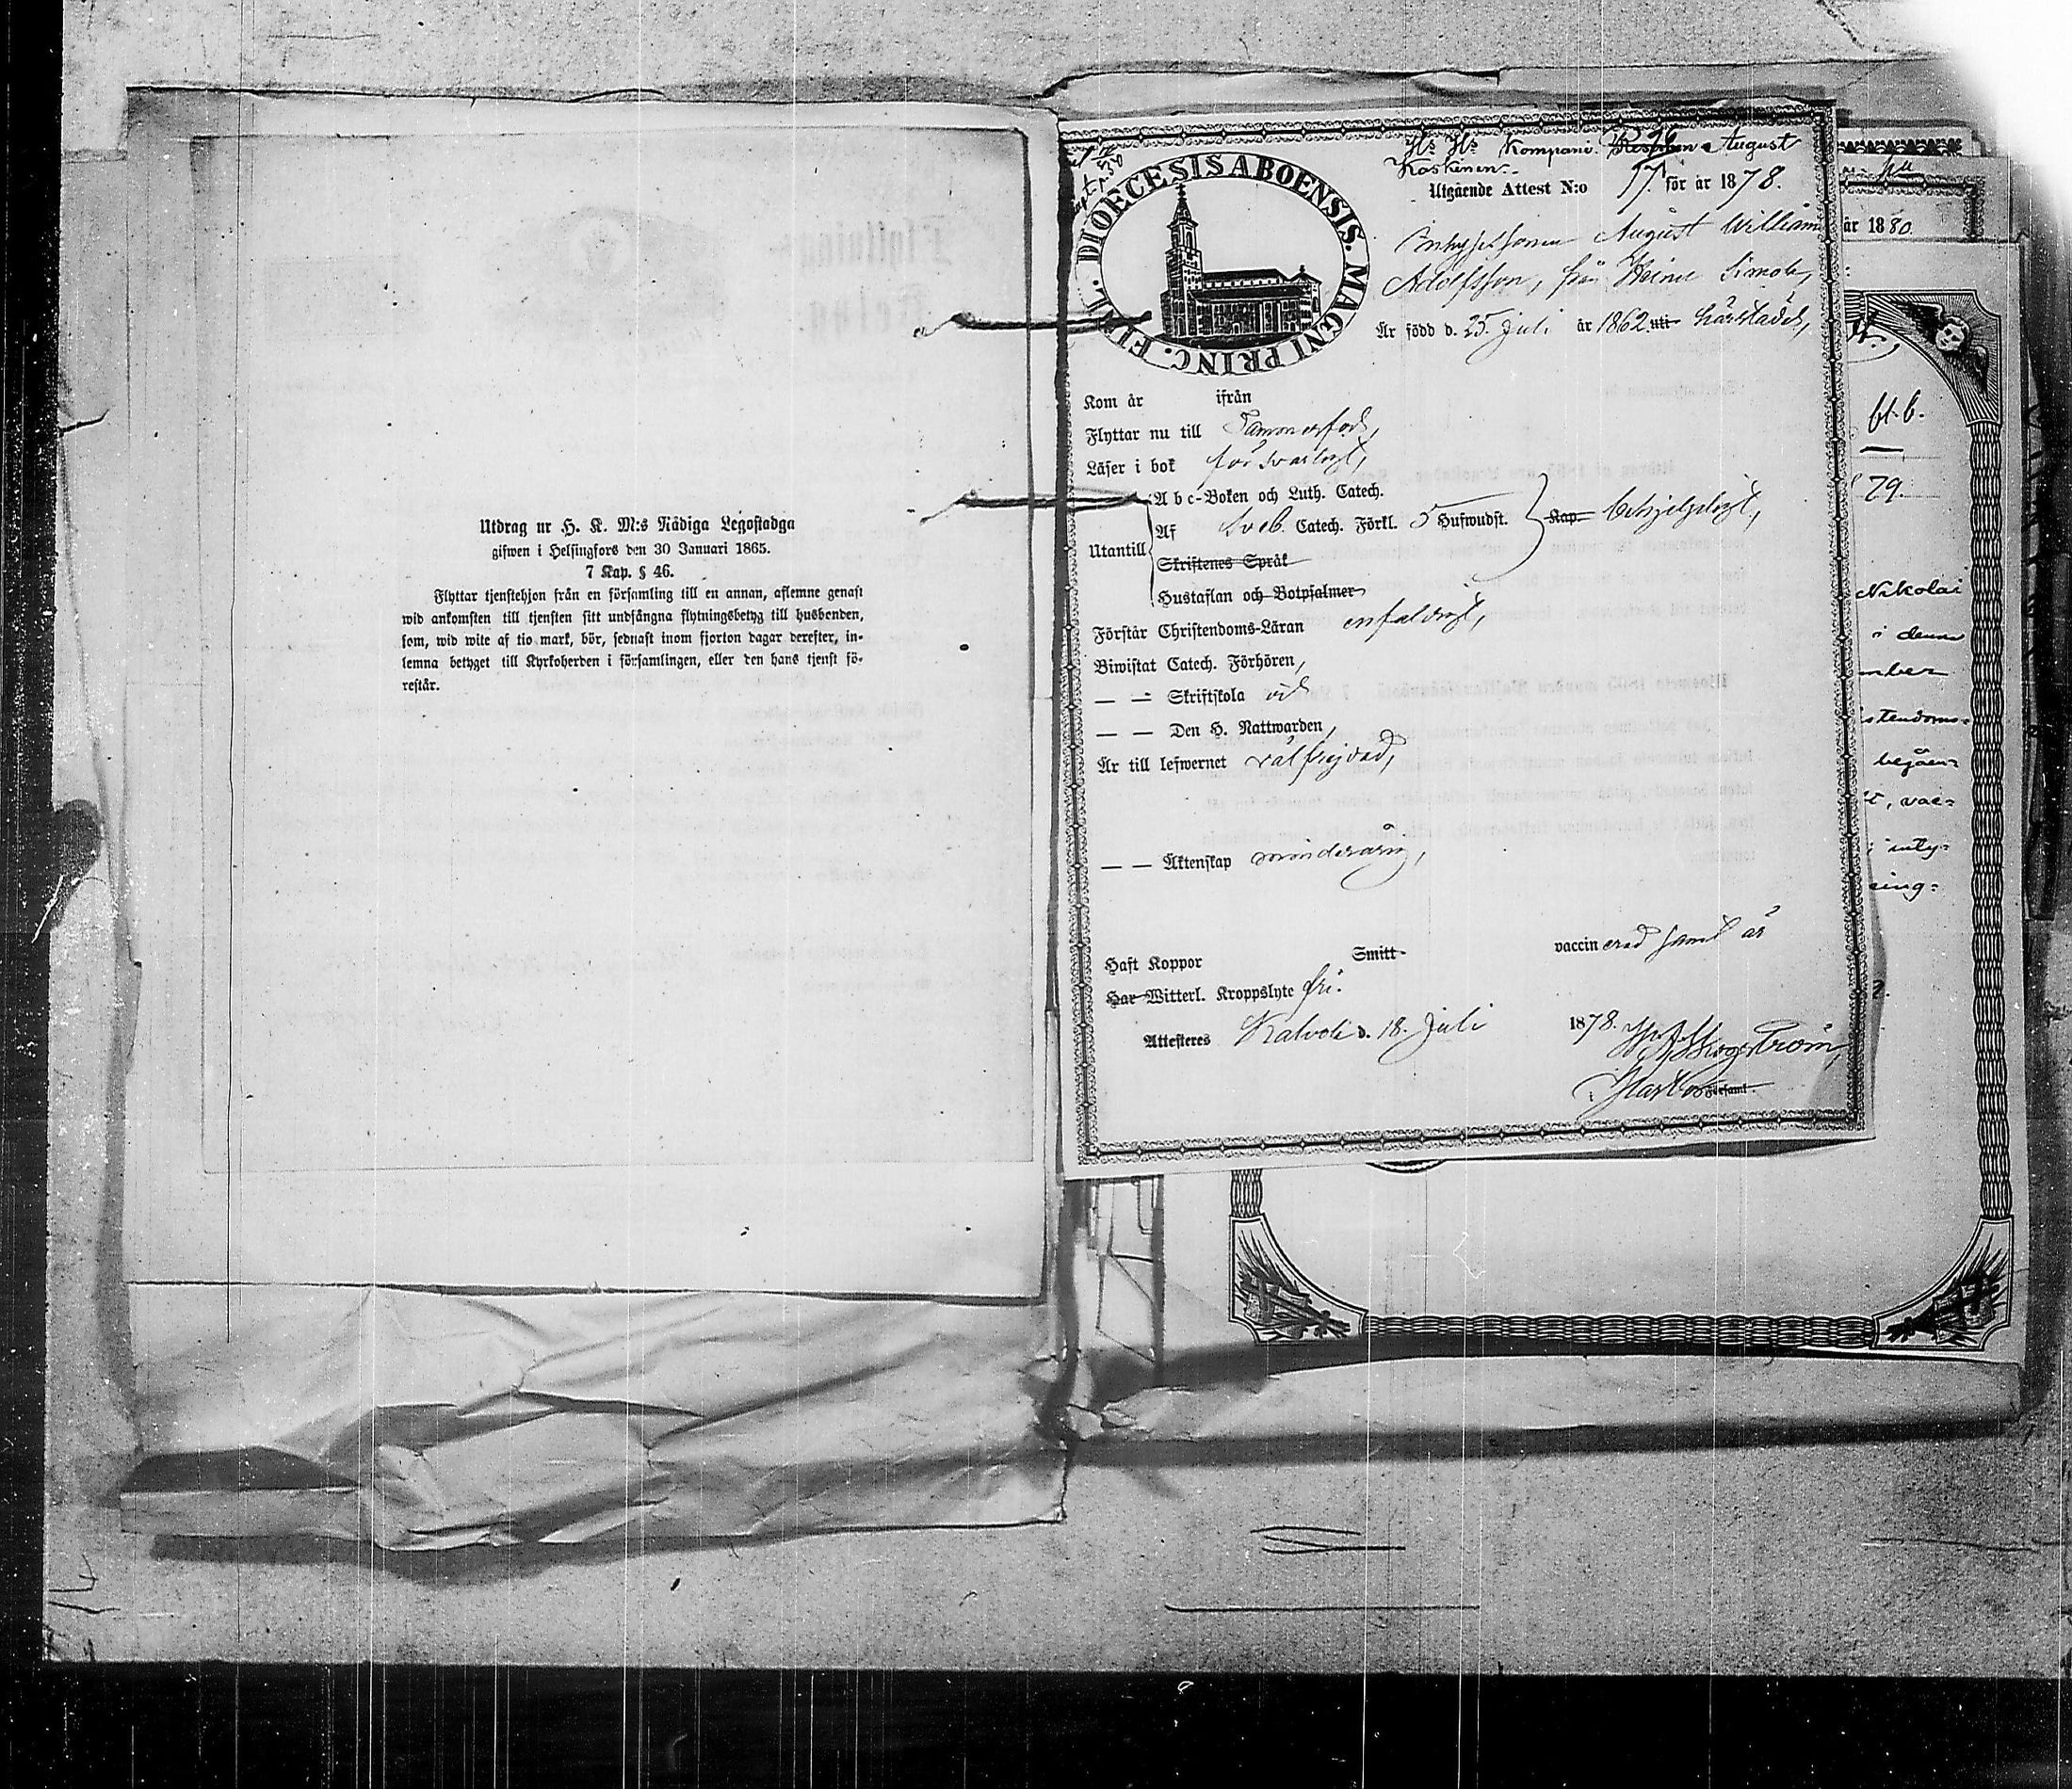 Utdrag ur H. K. M:s Nådiga Legostadga
gifwen i Helsingfors den 30 Januari 1865.
7 Kap. § 46.
Flyttar tjenstehjon från en församling till en annan, aflemne genast
wid ankomsten till tjensten sitt undfångna flytningsbetyg till husbonden,
som, wid wite af tio mark, bör, sednast inom fjorton dagar derefter, in-
lemna betyget till Kyrkoherden i församlingen, eller den hans tjenst fö-
restår.
Kompani August
Koskinen
DIOECESIS ABOENSIS. MAGNI PRINC. FINL.
Utgående Attest N:o 57 för år 1878.
August William
Adolfsson, från Heinu Simola,
Är född d. 25 Juli år 1862 uti härstädes,
Kom år ifrån
Flyttar nu till Tammerfors,
Läser i bok försvarligt,
Abc-Boken och Luth. Catech.
Af Sveb. Catech. Förkl. 5 Hufwudst. Kap. behjelpligt,
Utantill
Skriftenes Språk
Hustaflan och Botpsalmer
Förstår Christendoms-Läran enfaldigt,
Biwistat Catech. Förhören,
— — Skriftskola och
— — Den H. Nattwarden,
Är till lefwernet välfrejdad,
— — Äktenskap minderårig,
Haft Koppor Smitt- vaccinerad samt är
Har Witterl. Kroppslyte fri.
Attesteres Kalvola d. 18 Juli 1878.
församl.
år 1880
bl. b.
79.
Nikolai
i denna
mber
stendoms-
begåen-
t, vac-
inty-
ning-